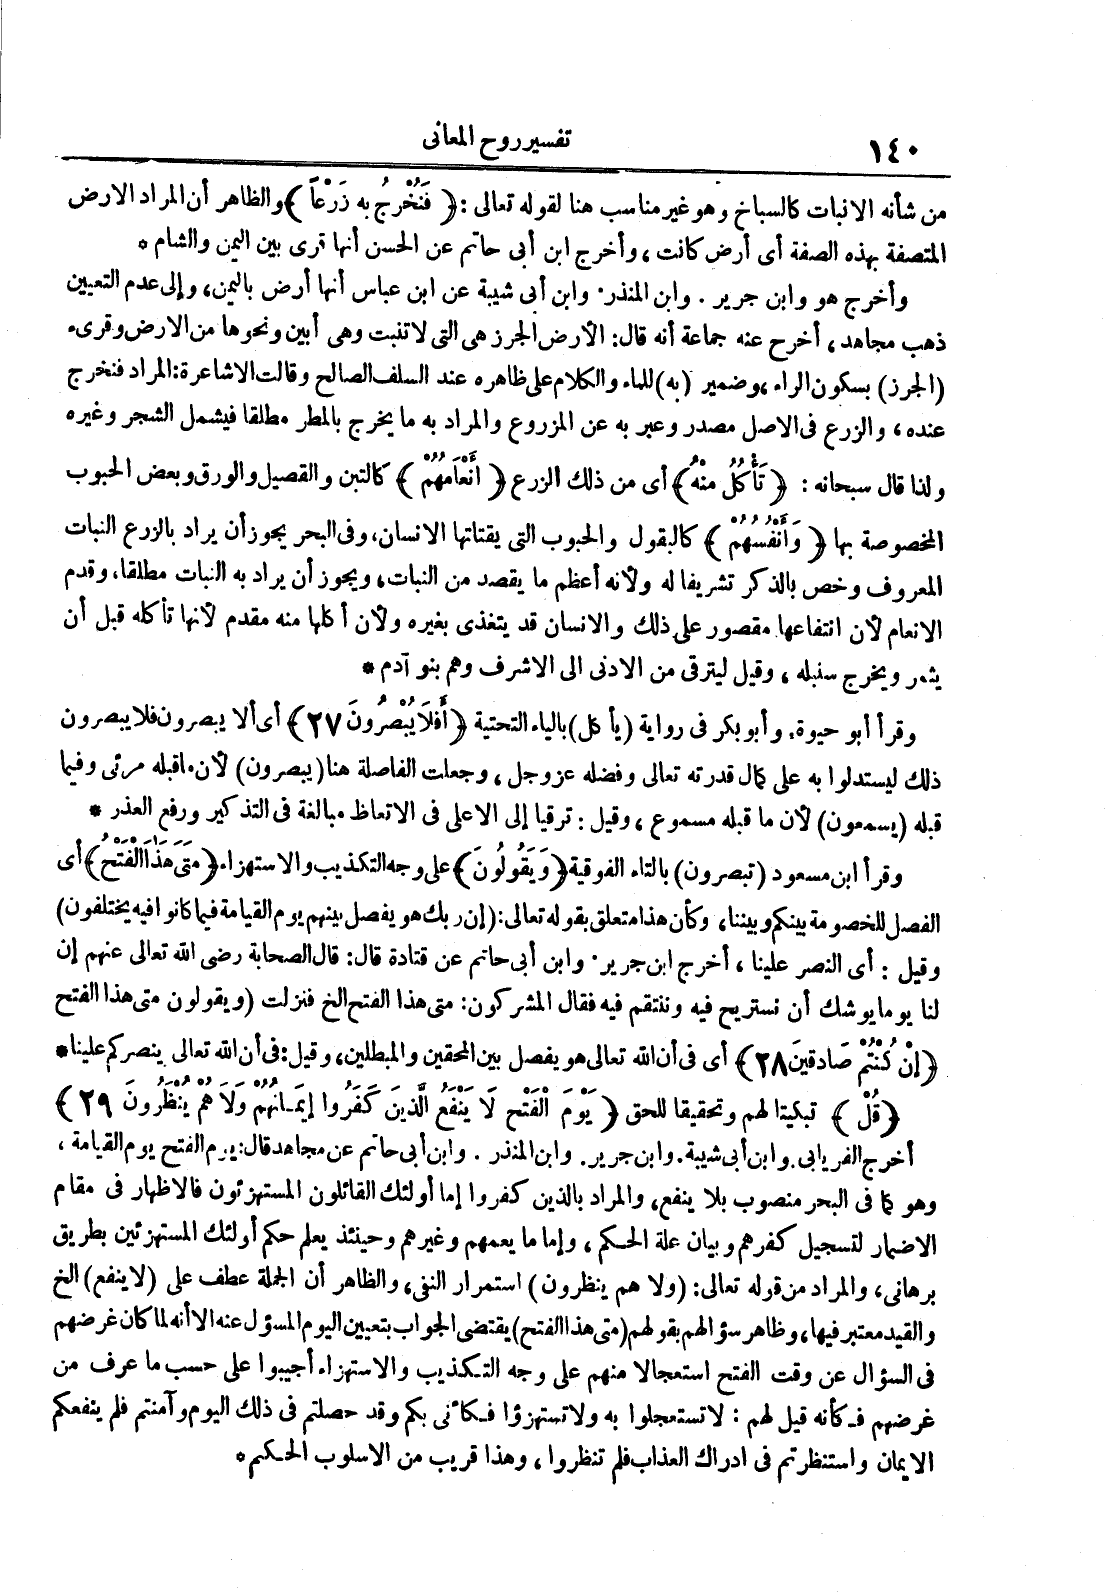 ١٤٠
تفسير روح المعانى
من شأنه الانبات كالسباخ وهو غير مناسب هنا لقوله تعالى : ﴿ فَنُخْرِجُ بِهِ زَرْعاً ﴾ والظاهر أن المراد الارض
المتصفة بهذه الصفة أى أرض كانت ، وأخرج ابن أبى حاتم عن الحسن أنها قرى بين اليمن والشام *
وأخرج هو وابن جرير . وابن المنذر . وابن أبى شيبة عن ابن عباس أنها أرض باليمن ، وإلى عدم التعيين
ذهب مجاهد ، أخرج عنه جماعة أنه قال : الأرض الجرز هى التى لا تنبت وهى أبين ونحوها من الارض وقرىء
(الجرز) بسكون الراء ، وضمير (به) للماء والكلام على ظاهره عند السلف الصالح وقالت الاشاعرة : المراد فنخرج
عنده ، والزرع فى الاصل مصدر وعبر به عن المزروع والمراد به ما يخرج بالمطر مطلقا فيشمل الشجر وغيره
ولذا قال سبحانه : ﴿ تَأْكُلُ مِنْهُ ﴾ أى من ذلك الزرع ﴿ أَنْعَامُهُمْ ﴾ كالتبن والقصيل والورق وبعض الحبوب
المخصوصة بها ﴿ وَأَنْفُسُهُمْ ﴾ كالبقول والحبوب التى يقتاتها الانسان ، وفى البحر يجوز أن يراد بالزرع النبات
المعروف وخص بالذكر تشريفا له ولأنه أعظم ما يقصد من النبات ، ويجوز أن يراد به النبات مطلقا ، وقدم
الانعام لأن انتفاعها مقصور على ذلك والانسان قد يتغذى بغيره ولأن أكلها منه مقدم لأنها تأكله قبل أن
يثمر ويخرج سنبله ، وقيل ليترقى من الادنى الى الاشرف وهم بنو آدم *
وقرأ أبو حيوة . وأبو بكر فى رواية (يأكل) بالياء التحتية ﴿ أَفَلَا يُبْصِرُونَ ٢٧ ﴾ أى ألا يبصرون فلا يبصرون
ذلك ليستدلوا به على كمال قدرته تعالى وفضله عز وجل ، وجعلت الفاصلة هنا (يبصرون) لأن ماقبله مرئى وفيما
قبله (يسمعون) لأن ما قبله مسموع ، وقيل : ترقيا إلى الاعلى فى الاتعاظ مبالغة فى التذكير ورفع العذر *
وقرأ ابن مسعود (تبصرون) بالتاء الفوقية ﴿ وَيَقُولُونَ ﴾ على وجه التكذيب والاستهزاء ﴿ مَتَى هَذَا الْفَتْحُ ﴾ أى
الفصل للخصومة بينكم وبيننا ، وكأن هذا متعلق بقوله تعالى : (إن ربك هو يفصل بينهم يوم القيامة فيما كانوا فيه يختلفون)
وقيل : أى النصر علينا ، أخرج ابن جرير . وابن أبى حاتم عن قتادة قال : قال الصحابة رضى الله تعالى عنهم إن
لنا يوما يوشك أن نستريح فيه وننتقم فيه فقال المشركون : متى هذا الفتح الخ فنزلت (ويقولون متى هذا الفتح
﴿ إِنْ كُنْتُمْ صَادِقِينَ ٢٨ ﴾ أى فى أن الله تعالى هو يفصل بين المحقين والمبطلين ، وقيل : فى أن الله تعالى ينصركم علينا *
﴿ قُلْ ﴾ تبكيتا لهم وتحقيقا للحق ﴿ يَوْمَ الْفَتْحِ لَا يَنْفَعُ الَّذِينَ كَفَرُوا إِيمَـانُهُمْ وَلَا هُمْ يُنْظَرُونَ ٢٩ ﴾
أخرج الفريابى . وابن أبى شيبة . وابن جرير . وابن المنذر . وابن أبى حاتم عن مجاهد قال : يوم الفتح يوم القيامة ،
وهو كما فى البحر منصوب بلا ينفع ، والمراد بالذين كفروا إما أولئك القائلون المستهزئون فالاظهار فى مقام
الاضمار لتسجيل كفرهم وبيان علة الحكم ، وإما ما يعمهم وغيرهم وحينئذ يعلم حكم أولئك المستهزئين بطريق
برهانى ، والمراد من قوله تعالى : (ولا هم ينظرون) استمرار النفى ، والظاهر أن الجملة عطف على (لا ينفع) الخ
والقيد معتبر فيها ، وظاهر سؤالهم بقولهم (متى هذا الفتح) يقتضى الجواب بتعيين اليوم المسؤل عنه الا أنه لما كان غرضهم
فى السؤال عن وقت الفتح استعجالا منهم على وجه التكذيب والاستهزاء أجيبوا على حسب ما عرف من
غرضهم فكأنه قيل لهم : لا تستعجلوا به ولا تستهزؤا فكأنى بكم وقد حصلتم فى ذلك اليوم وآمنتم فلم ينفعكم
الايمان واستنظرتم فى ادراك العذاب فلم تنظروا ، وهذا قريب من الاسلوب الحكيم *